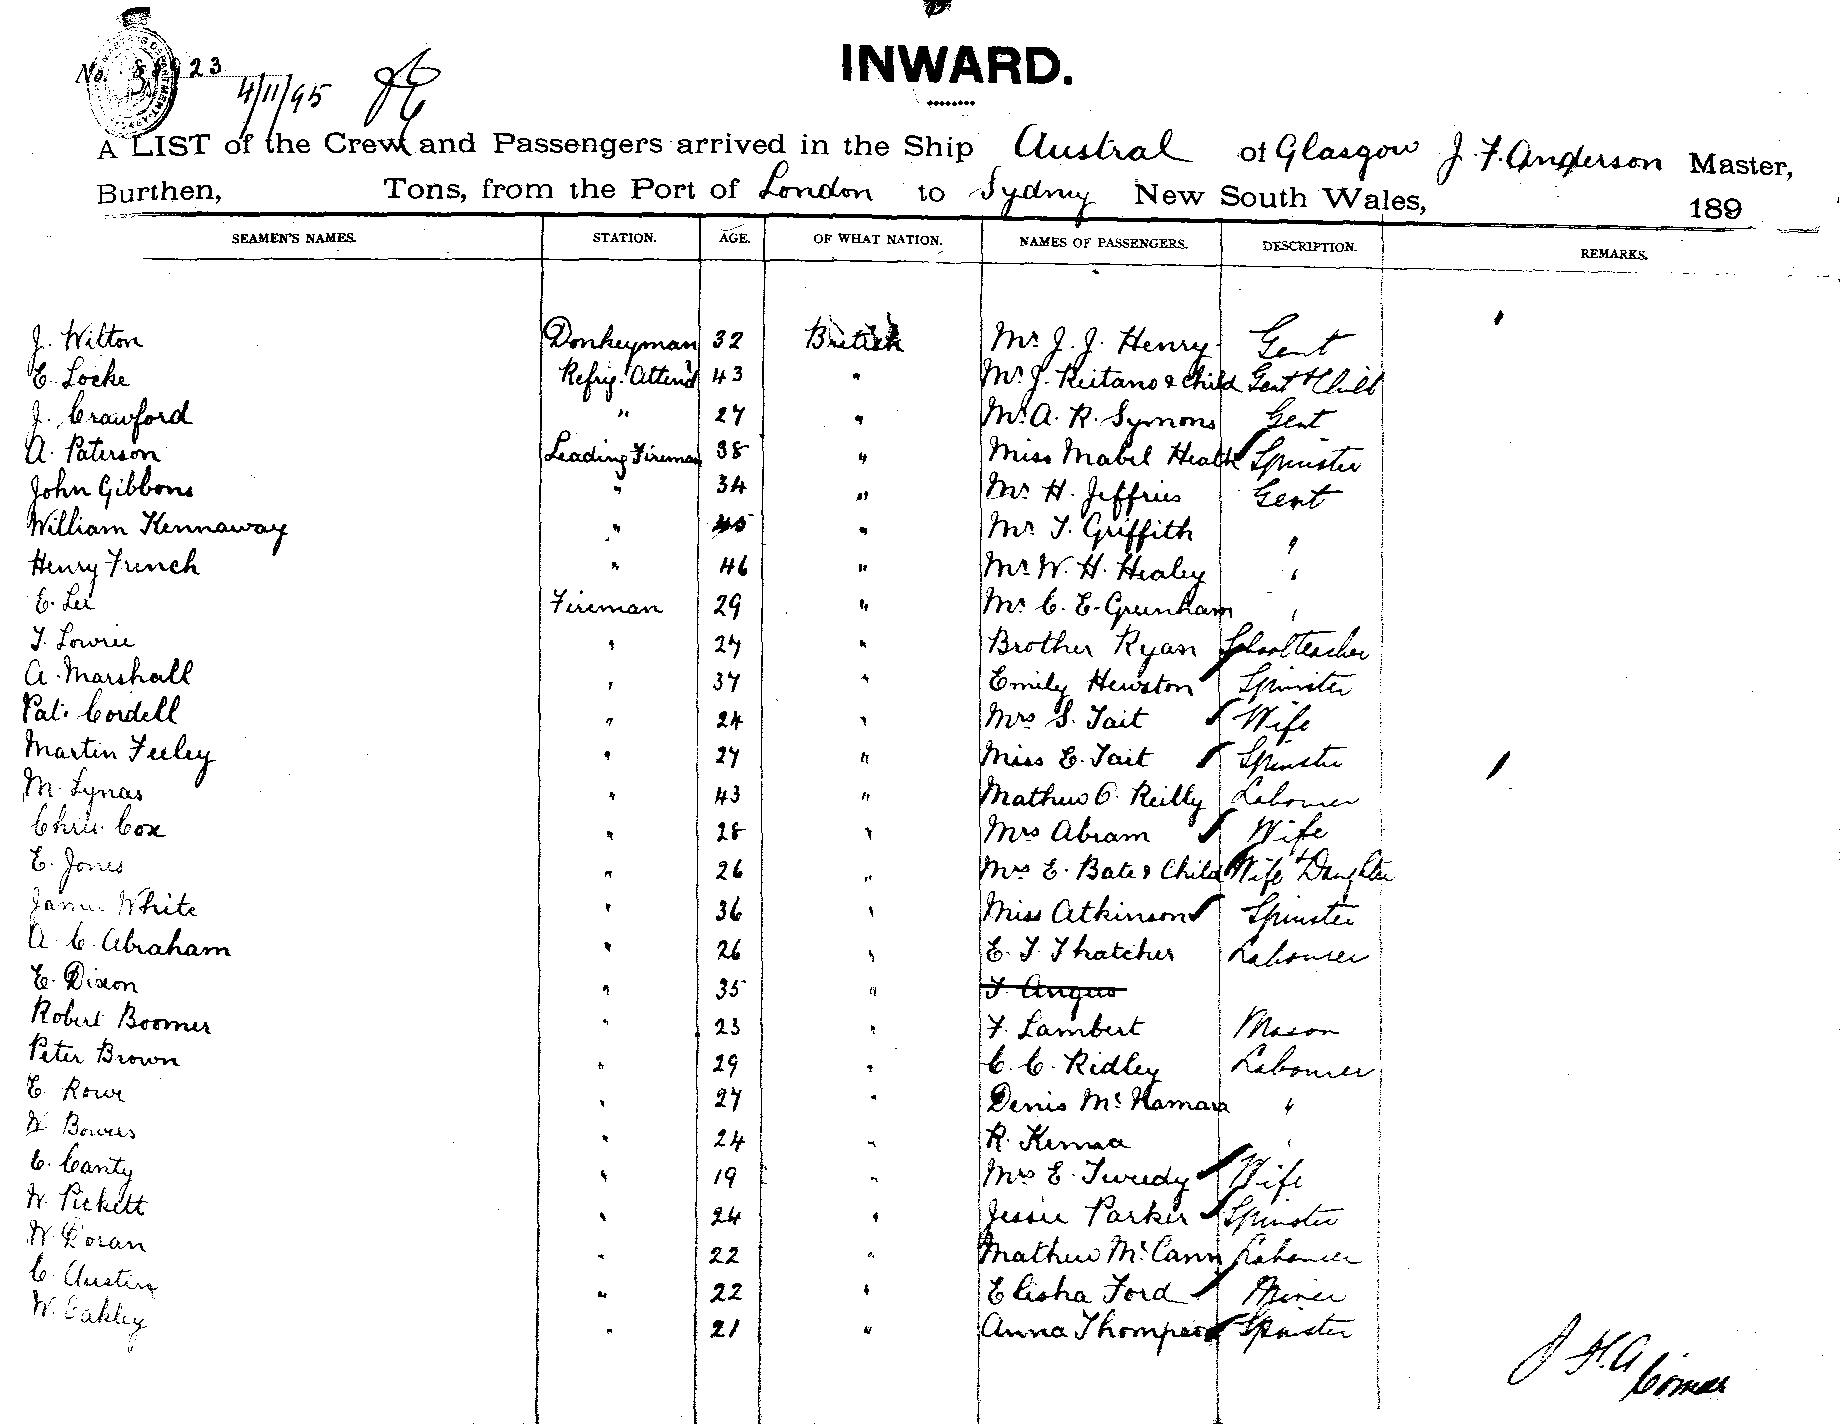 No. 23
4/11/95
INWARD.
A LIST of the Crew and Passengers arrived in the Ship Austral of Glasgow J. F. Anderson Master,
Burthen, Tons, from the Port of London to Sydney New South Wales, 189
SEAMEN'S NAMES. STATION. AGE. OF WHAT NATION. NAMES OF PASSENGERS. DESCRIPTION. REMARKS.
J. Wilton Donkeyman 32 British Mr J. J. Henry Gent
E. Locke Refrig. Attend 43 " Mr J. Reitano & Child Gent & Child
J. Crawford " 27 " Mr A. R. Symons Gent
A. Paterson Leading Fireman 38 " Miss Mabel Heath Spinster
John Gibbons " 34 " Mr H. Jeffries Gent
William Kennaway " 45 " Mr T. Griffith "
Henry French " 46 " Mr W. H. Healey "
E. Lee Fireman 29 " Mr C. E. Greenham "
T. Lowrie " 27 " Brother Ryan Schoolteacher
A. Marshall " 37 " Emily Hewston Spinster
Pat. Cordell " 24 " Mrs S. Tait Wife
Martin Feeley " 27 " Miss E. Tait Spinster
M. Lynas " 43 " Mathew O. Reilly Labourer
Chris. Cox " 28 " Mrs Abram Wife
E. Jones " 26 " Mrs E. Bate & Child Wife & Daughter
James White " 36 " Miss Atkinson Spinster
A. C. Abraham " 26 " E. T. Thatcher Labourer
E. Dixon " 35 " T. Angus
Robert Boomer " 23 " F. Lambert Mason
Peter Brown " 29 " C. C. Ridley Labourer
E. Rowe " 27 " Denis McNamara "
W. Bowes " 24 " R. Kenna "
E. Canty " 19 " Mrs E. Tweedy Wife
W. Pickett " 24 " Jessie Parker Spinster
W. Doran " 22 " Mathew McCann Labourer
C. Austin " 22 " Elisha Ford Miner
W. Oakley " 21 " Anna Thompson Spinster